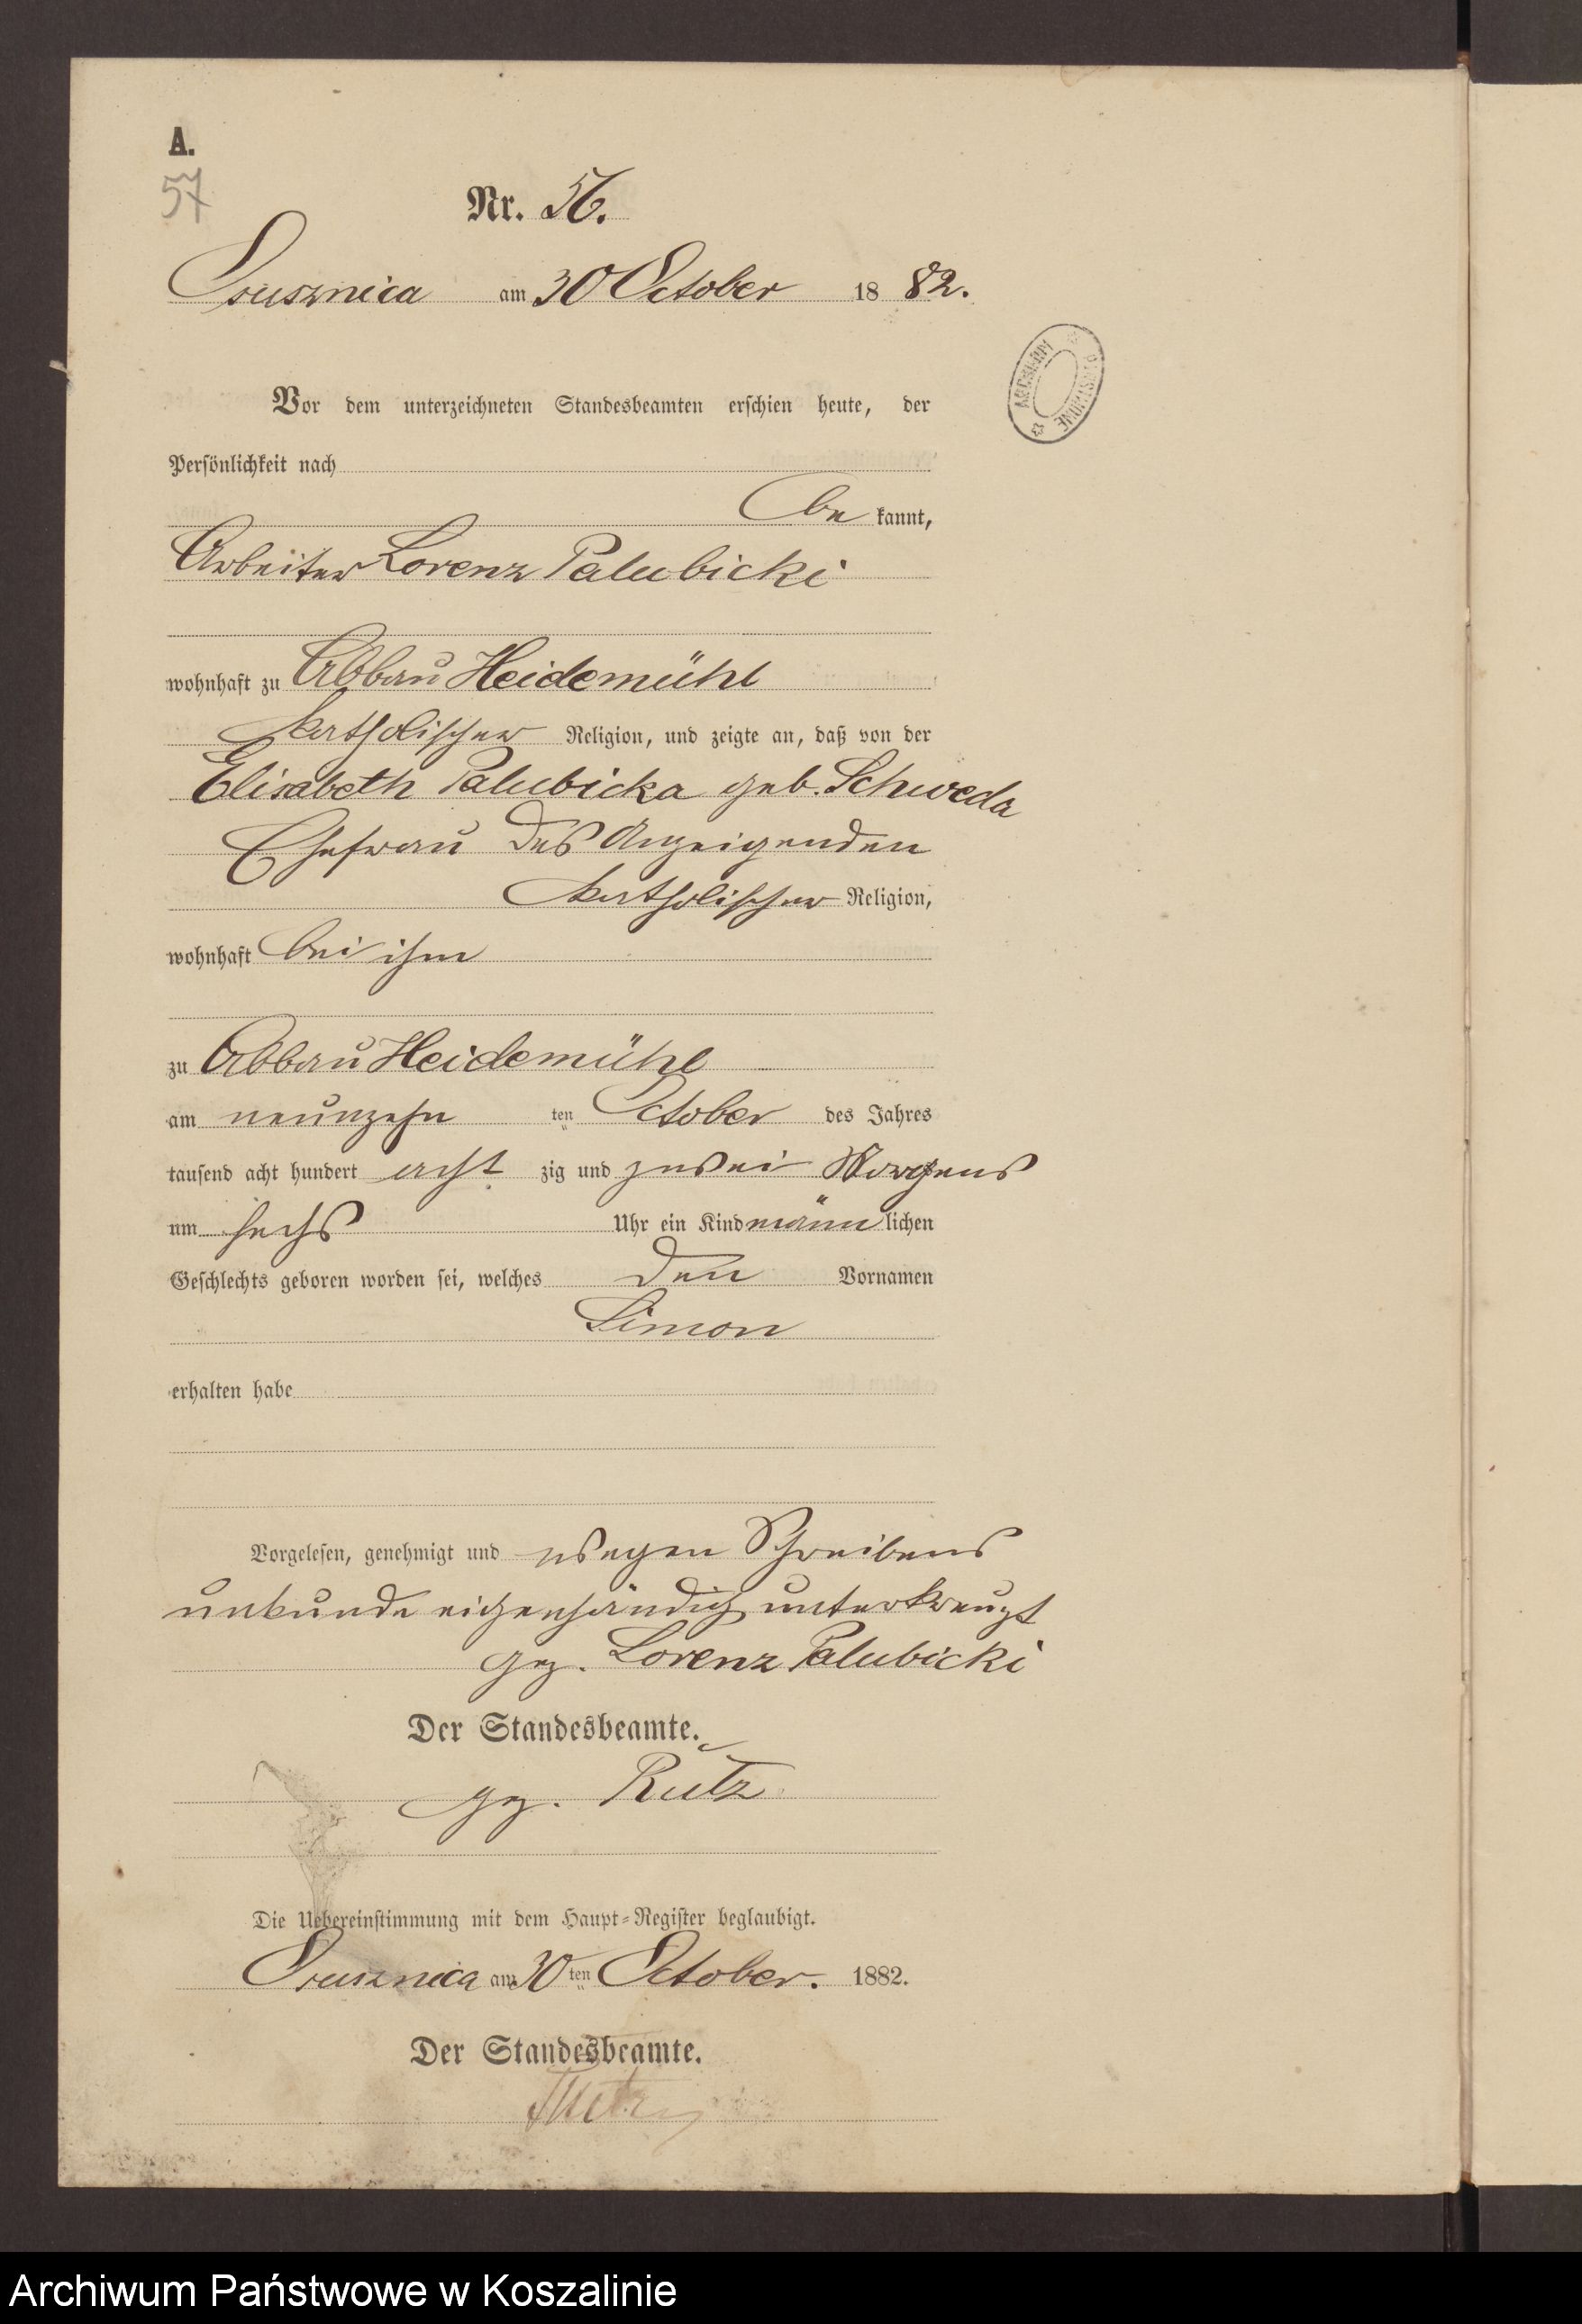 A.
57
Nr. 56.
Ossusznica am 30 October 1882.
Vor dem unterzeichneten Standesbeamten erschien heute, der
Persönlichkeit nach
be kannt,
Arbeiter Lorenz Palubicki
wohnhaft zu Abbau Heidemühl
katholischer Religion, und zeigte an, daß von der
Elisabeth Palubicka geb. Schweda
Ehefrau des Anzeigenden
katholischer Religion,
wohnhaft bei ihm
zu Abbau Heidemühl
am neunzehn ten October des Jahres
tausend acht hundert acht zig und zwei Morgens
um sechs Uhr ein Kind männlichen
Geschlechts geboren worden sei, welches den Vornamen
Simon
erhalten habe
Vorgelesen, genehmigt und wegen Schreibens
unkunde eigenhändig unterkreuzt
gez. Lorenz Palubicki
Der Standesbeamte.
gez. Rutz
Die Uebereinstimmung mit dem Haupt=Register beglaubigt.
am 30ten October. 1882.
Der Standesbeamte.
Rutz
Archiwum Państwowe w Koszalinie